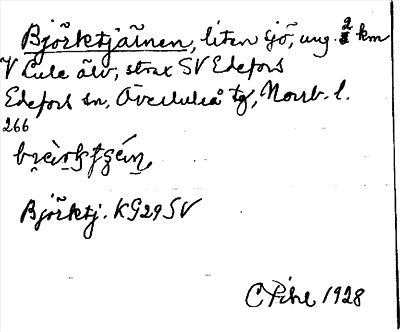 Björktjärnen, liten sjö, ung. 2 km
V Lule älv, strax SV Edefors
Edefors sn, Överluleå tg, Norrb. l.
266
Björktj. KG29SV
C Pihl 1928